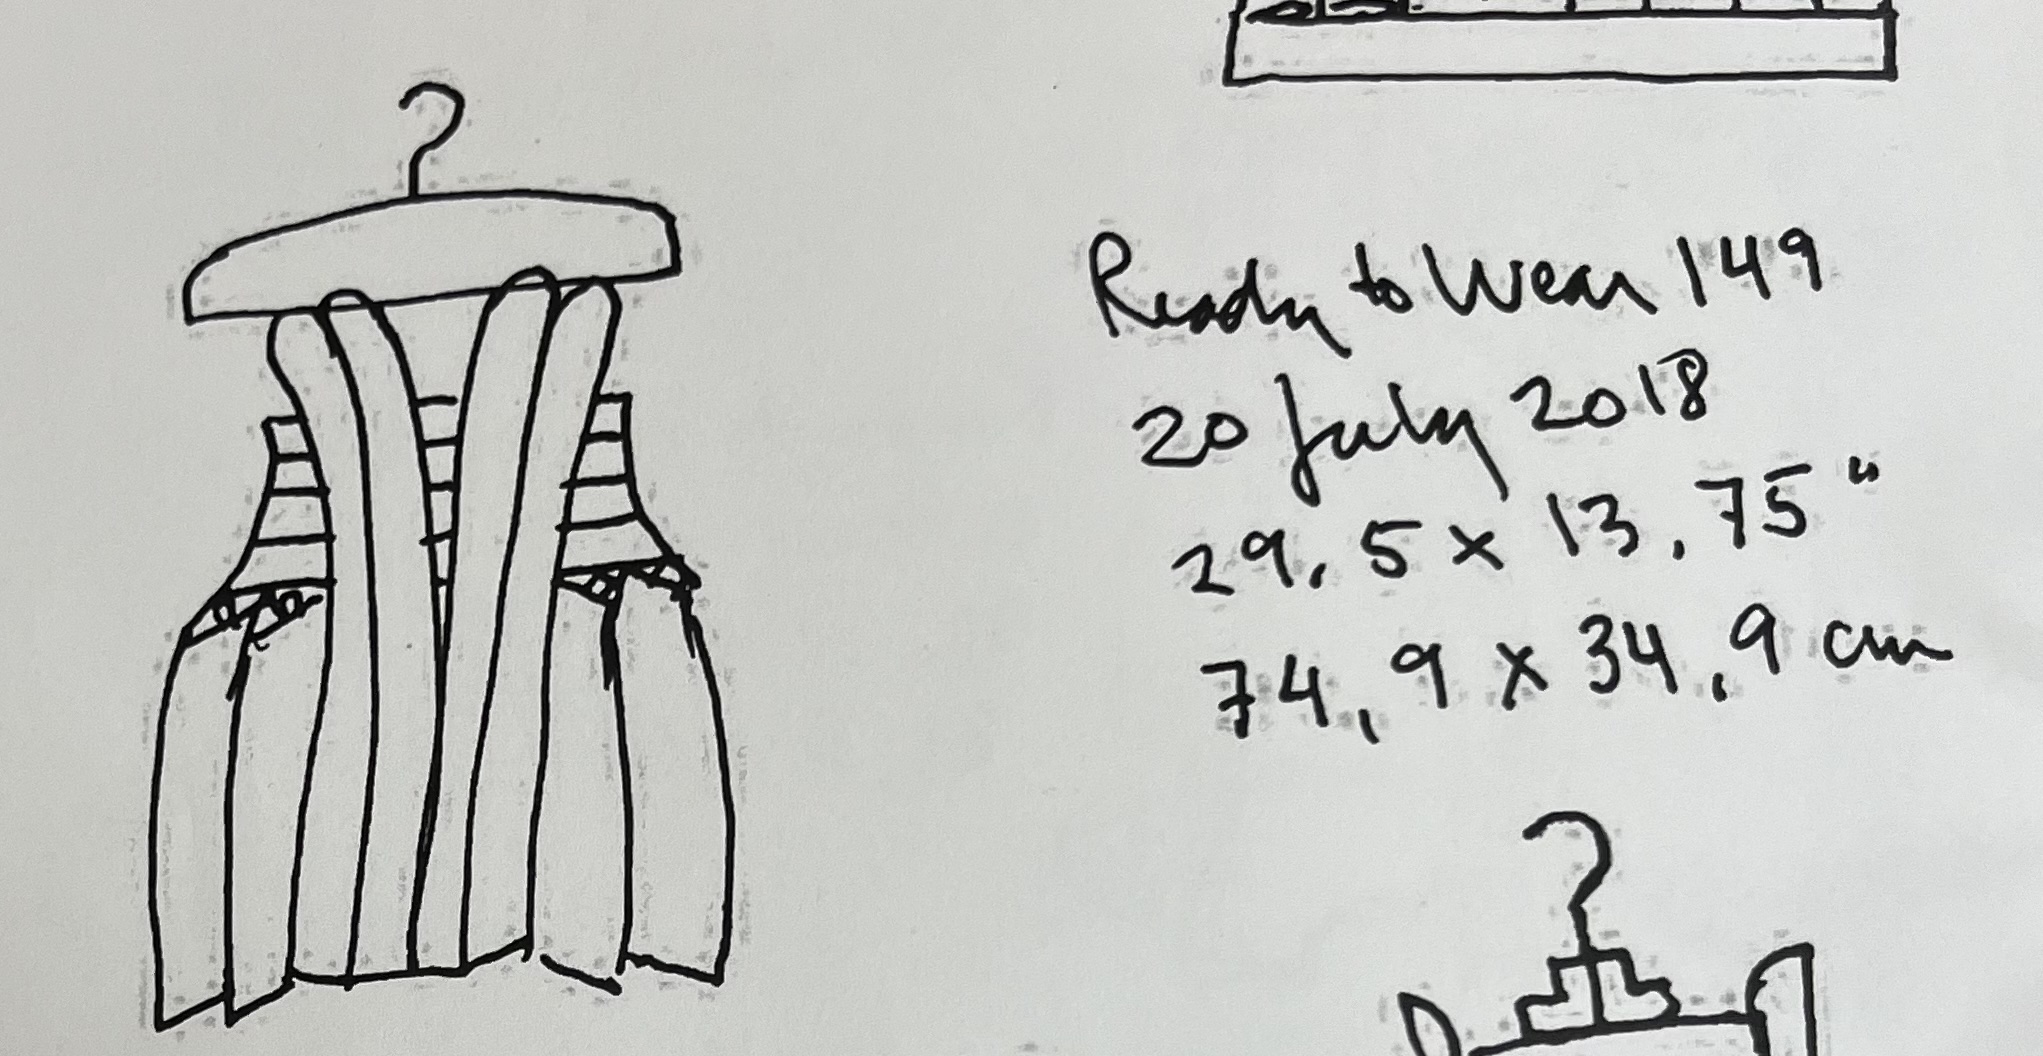 Ready to Wear 149
20 July 2018
29.5 x 13.75"
74.9 x 34.9 cm